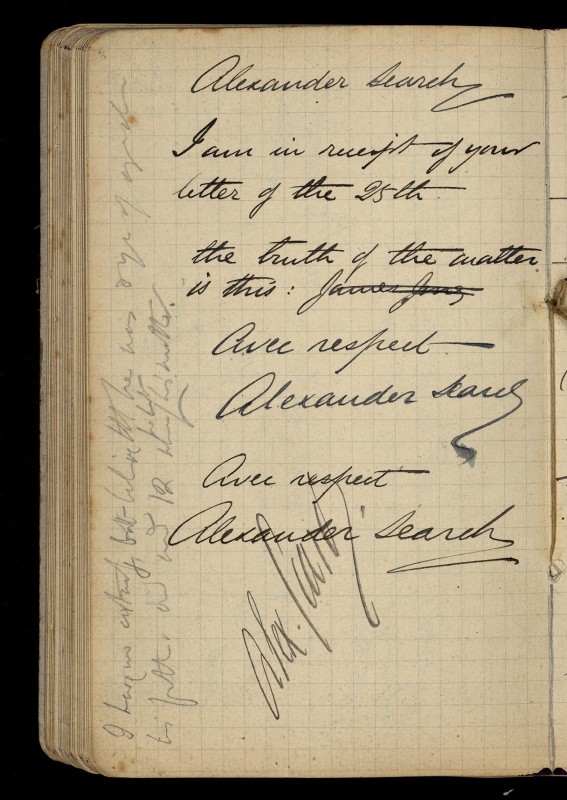 Alexander Search
I am in receipt of your
letter of the 25th.
the truth of the matter
is this: James Jones
Avec respect
Alexander Search
Avec respect
Alexander Search
Alex. Search
I
but he was
his father did and 12